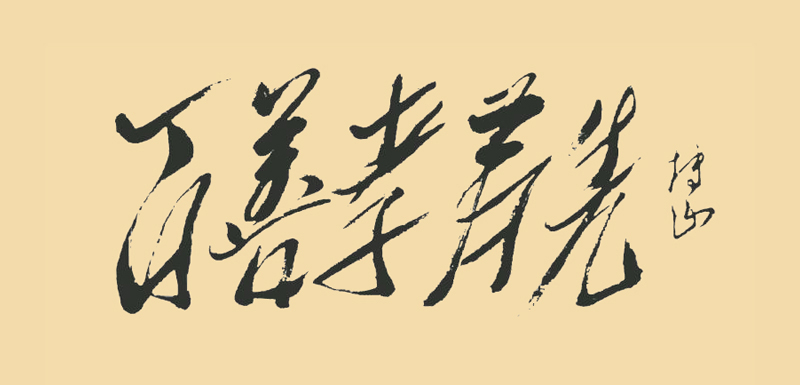 百善孝为先